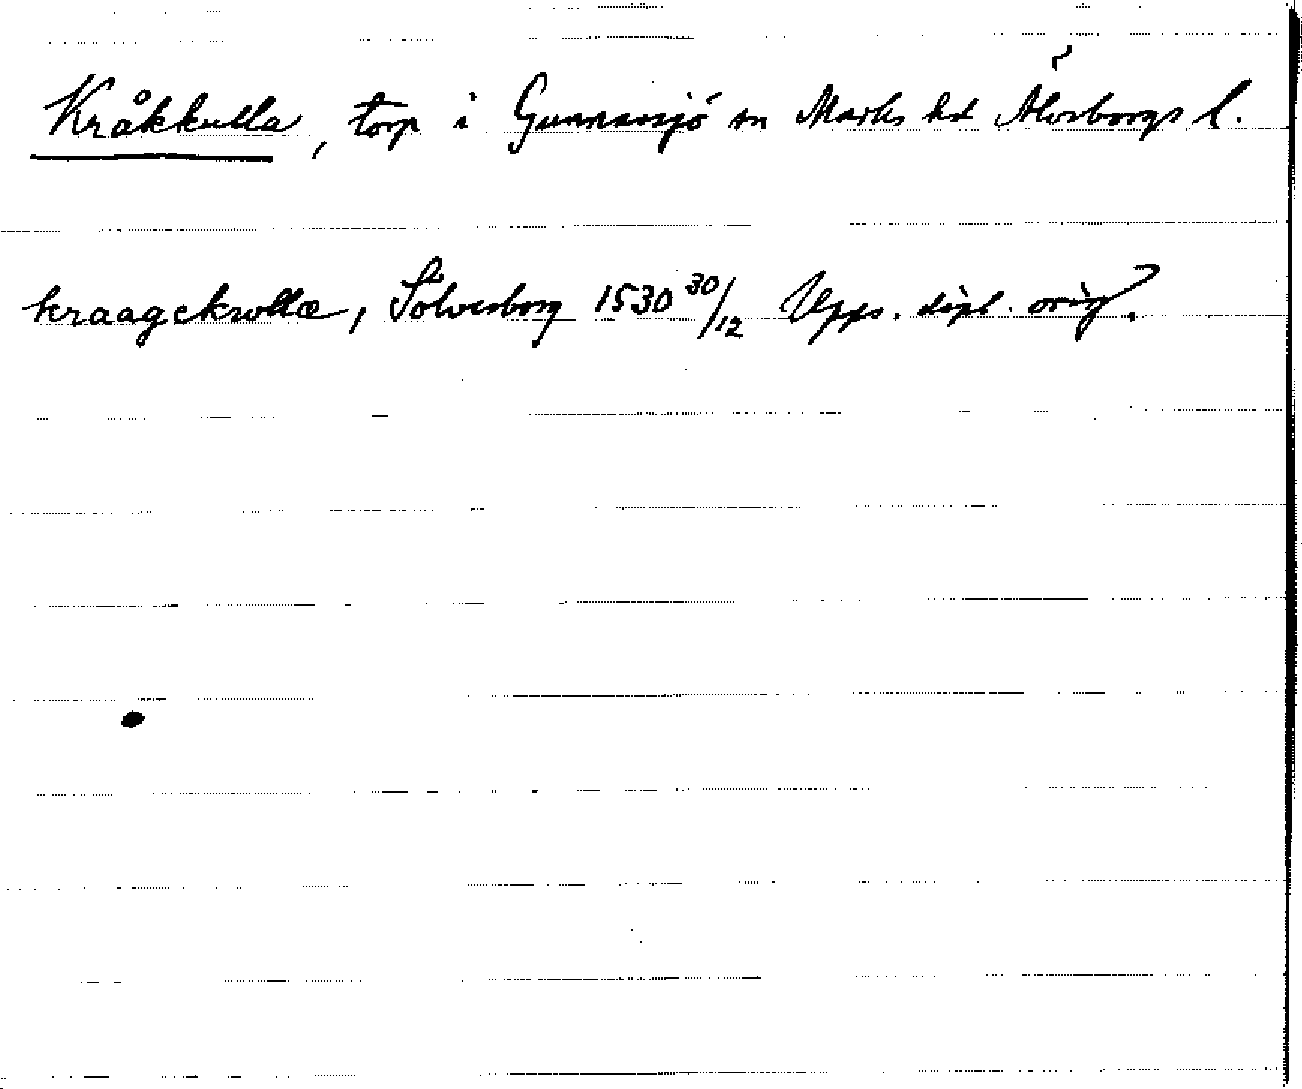 Kråkkulla, torp i Gunnarsjö sn Marks hd Älvsborgs l.
kraagekwllæ, Sölvesborg 1530 30/12 Upps. dipl. orig.